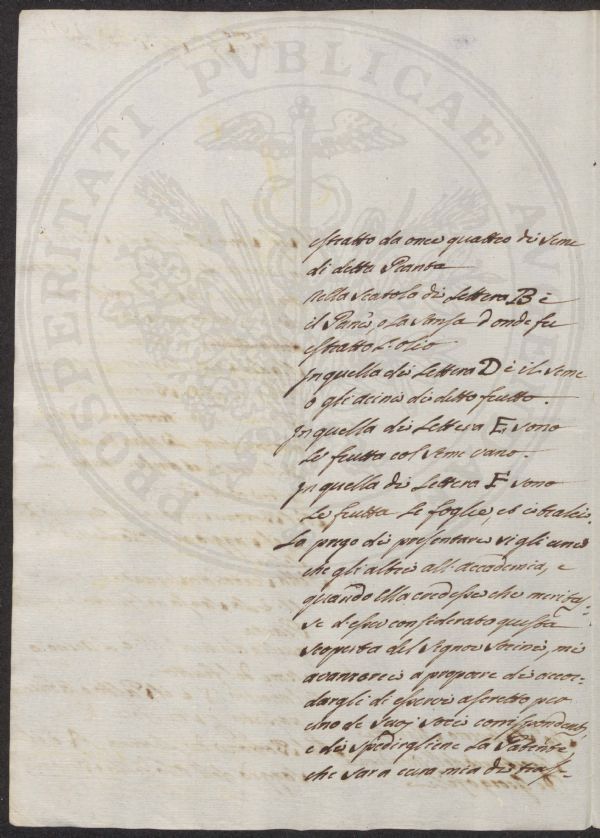 estratto da once quattro di seme
di detta Pianta
Nella Scatola di Lettera B è
il Pane, o la Sansa d'onde fu
estratto l'olio
In quella di Lettera D è il seme
o gli acini di detto frutto.
In quella di Lettera E, sono
Le frutta col seme vano.
In quella di Lettera F sono
Le frutta Le foglie, ed i tralci.
La prego di presentare sì gli uni
che gli altri all'Accademia, e
quando ella credesse che meritas-
se d'esser considerato questa
scoperta del Signor mi
avanzerei a proporre di accor-
dargli di essere ascritto per
uno de Suoi Soci corrispondenti,
e di spedirgliene La Patente,
che sarà cura mia di tras-
PROSPERITATI PVBLICAE